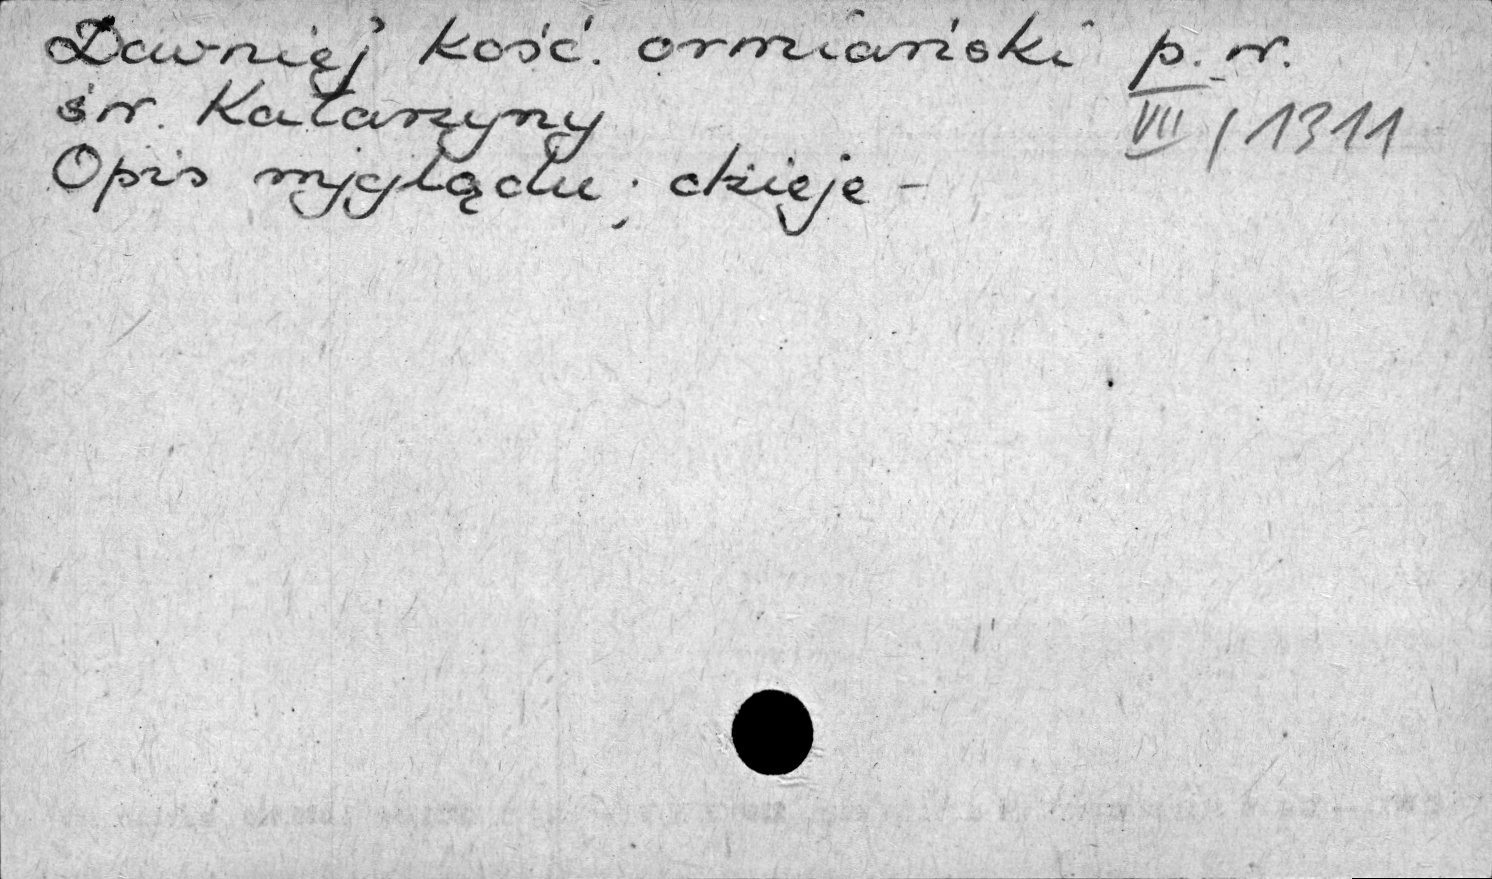 Dawniej kość. ormiański p. w.
św. Katarzyny
VII / 1311
Opis wyglądu; dzieje -